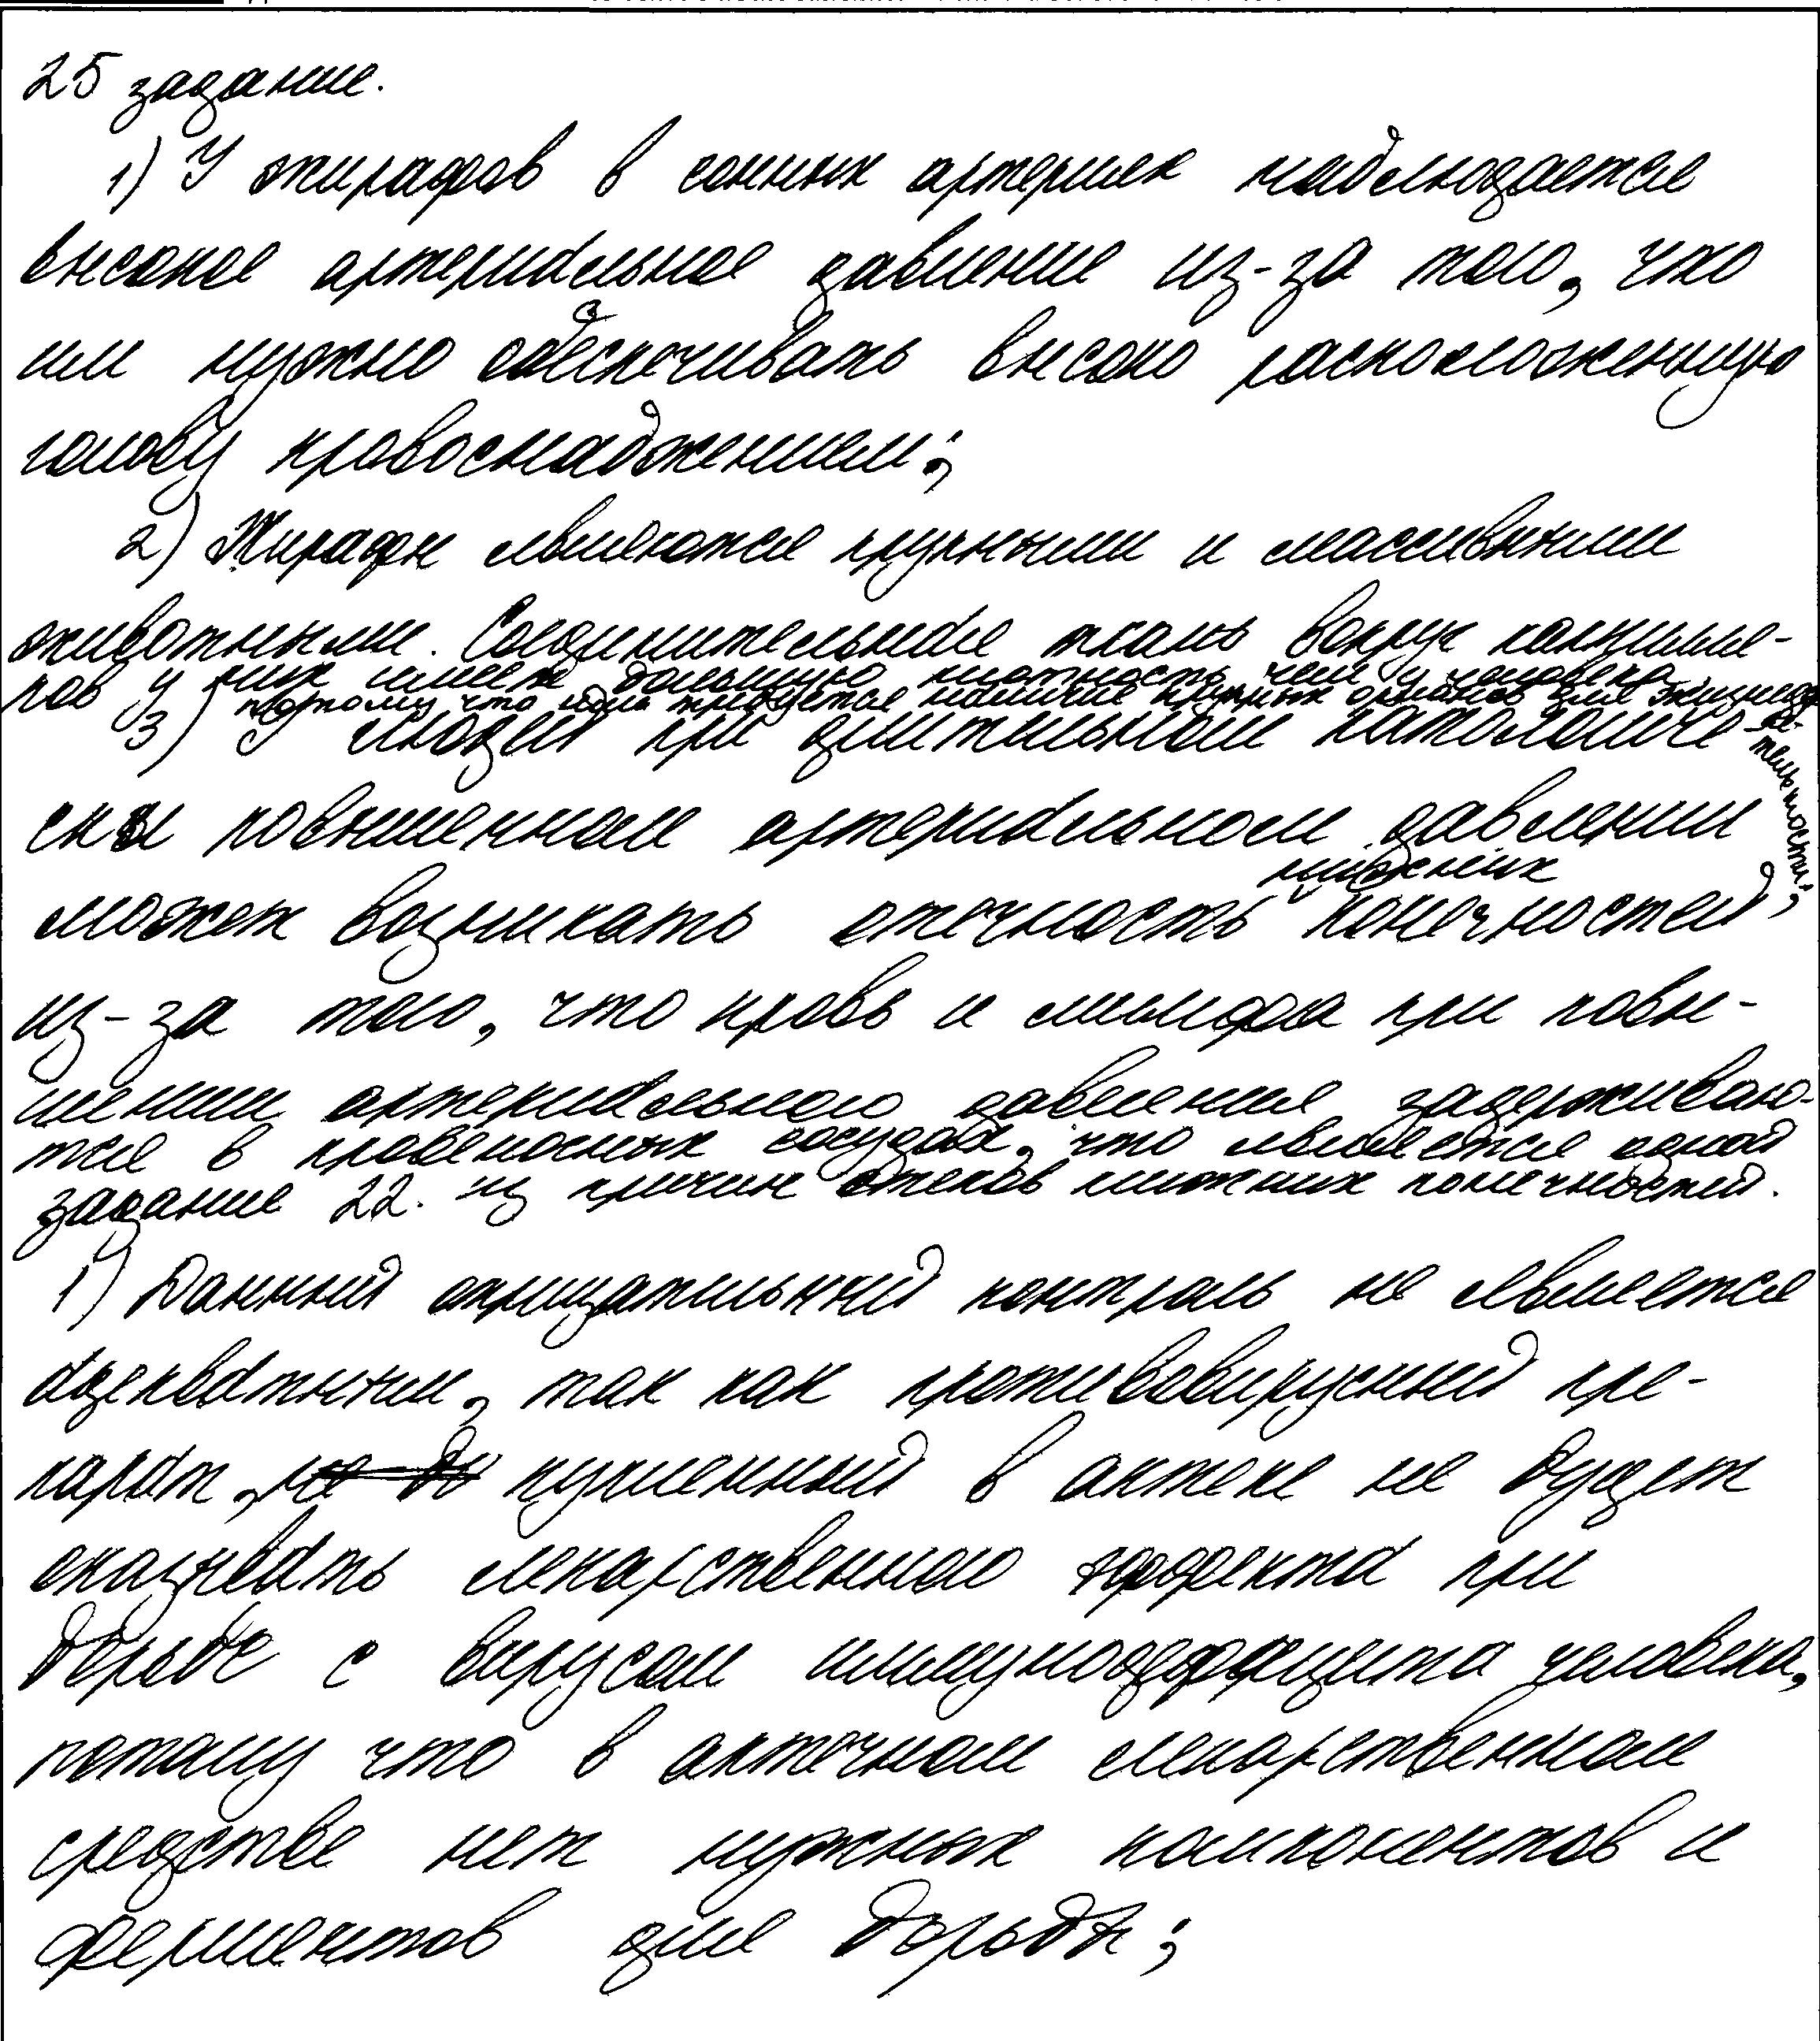 25 задание.
1) У жирафов в сонных артериях наблюдается
высокое артериальное давление из-за того, что
им нужно обеспечивать высоко расположенную
голову кровоснабжением;
2) Жирафы являются крупными и массивными
животными. Соединительная ткань вокруг капилля-
ров у них имеет большую плотность, чем у человека,
потому что им требуется наличие крупных органов для жизнедея-
тельности;
3) У людей при длительном патологиче-
ски повышенном артериальном давлении
может возникать отечность нижних конечностей,
из-за того, что кровь и лимфа при повы-
шении артериального давления задерживаю-
тся в кровеносных сосудах, что является одной
из причин отеков нижних конечностей.
задание 22.
1) Данный отрицательный контроль не является
адекватным, так как противовирусный пре-
парат, купленный в аптеке не будет
оказывать лекарственного эффекта при
борьбе с вирусом иммунодефицита человека,
потому что в аптечном лекарственном
средстве нет нужных компонентов и
ферментов для борьбы;